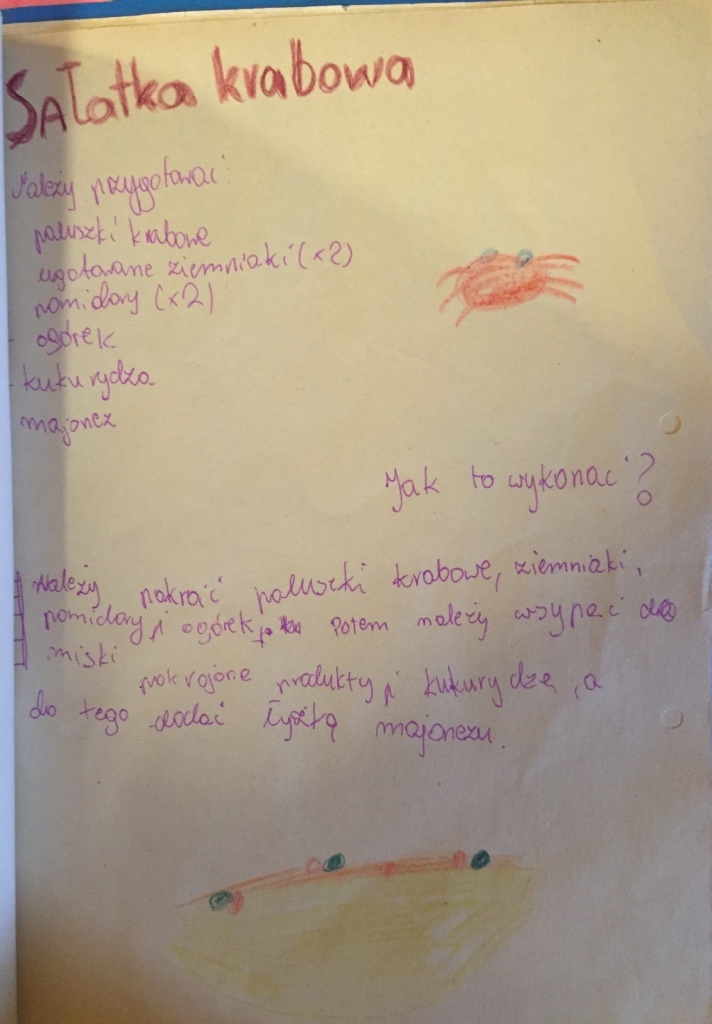 SAłatka krabowa
Należy przygotować:
paluszki krabowe
ugotowane ziemniaki (x2)
pomidory (x2)
- ogórek
- kukurydza
majonez
Jak to wykonać?
Należy pokroić paluszki krabowe, ziemniaki,
pomidory i ogórek, Potem należy wsypać do
miski
pokrojone produkty i kukurydzę, a
do tego dodać łyżkę majonezu.